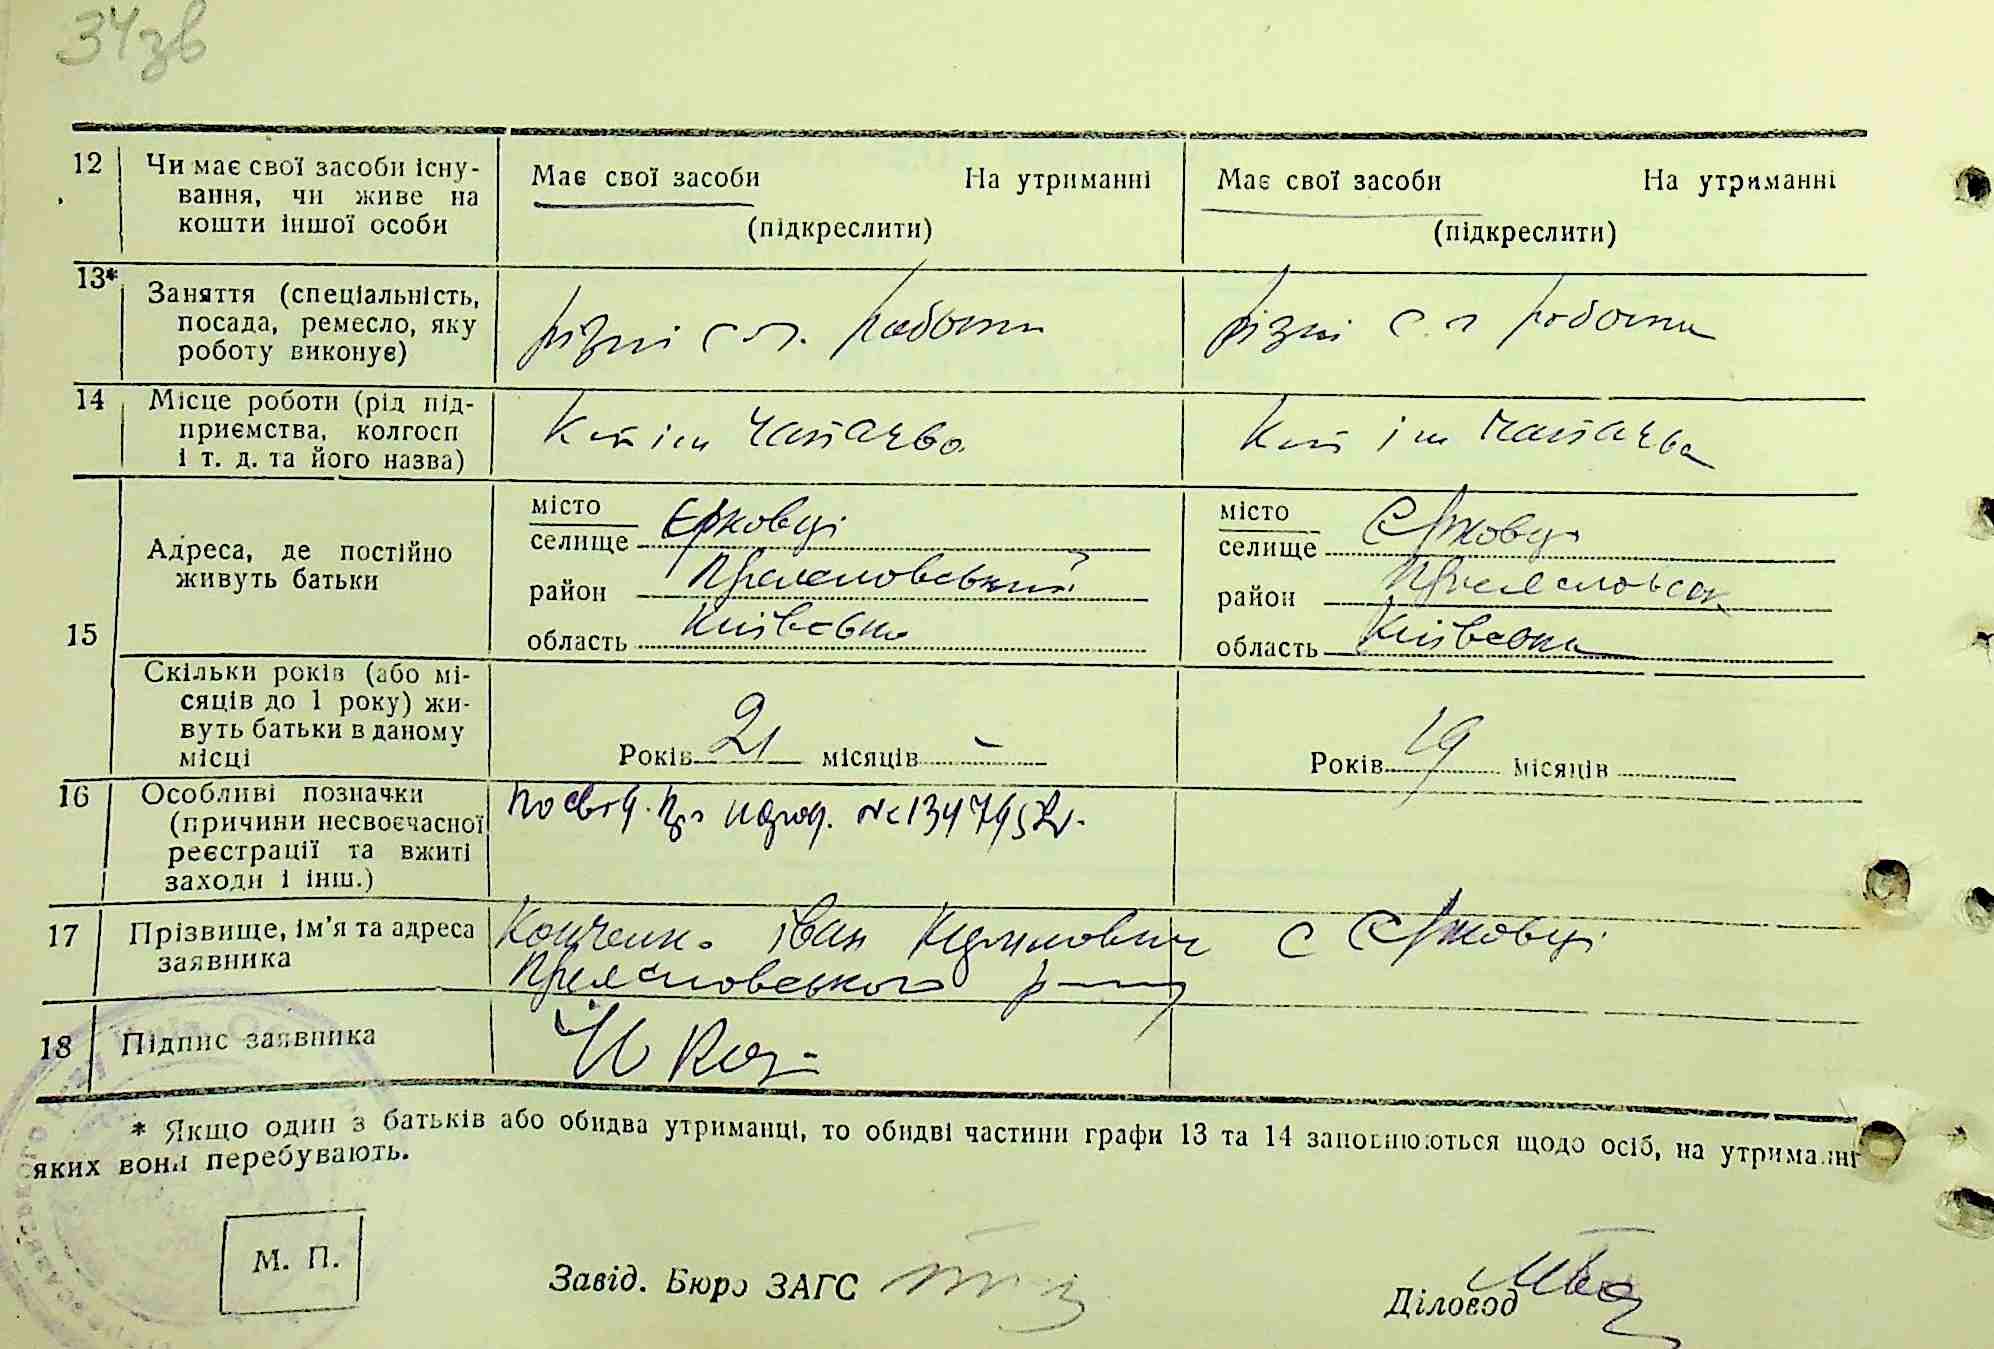 34зв
12 Чи має свої засоби існу-
вання, чи живе на
кошти іншої особи
Має свої засоби На утриманні
(підкреслити)
Має свої засоби На утриманні
(підкреслити)
13* Заняття (спеціальність,
посада, ремесло, яку
роботу виконує)
різні с.г. работи
різні с.г работи
14 Місце роботи (рід під-
приємства, колгосп
і т. д. та його назва)
ім Чапаєва
ім Чапаєва
15
Адреса, де постійно
живуть батьки
місто
селище Єрковці
район
область Київська
місто
селище Єрковці
район
область Київська
Скільки років (або мі-
сяців до 1 року) жи-
вуть батьки в даному
місці
Років 21 місяців –
Років 19 місяців
16 Особливі позначки
(причини несвоєчасної
реєстрації та вжиті
заходи і інш.)
Посвід. про
17 Прізвище, ім'я та адреса
заявника
Іван с Єрковці
18 Підпис заявника
* Якщо один з батьків або обидва утриманці, то обидві частини графи 13 та 14 заповнюються щодо осіб, на утриманні
яких вони перебувають.
М. П.
Завід. Бюро ЗАГС
Діловод